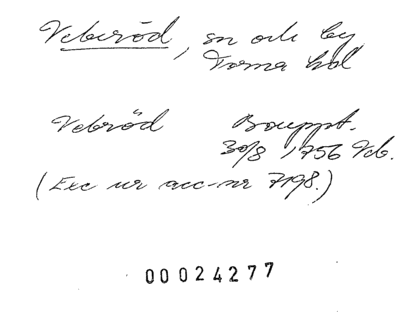 Veberöd, sn och by
Torna hd
Vebröd Bouppt.
30/8 1756 Vb.
(Exc ur acc-nr 7198.)
00024277